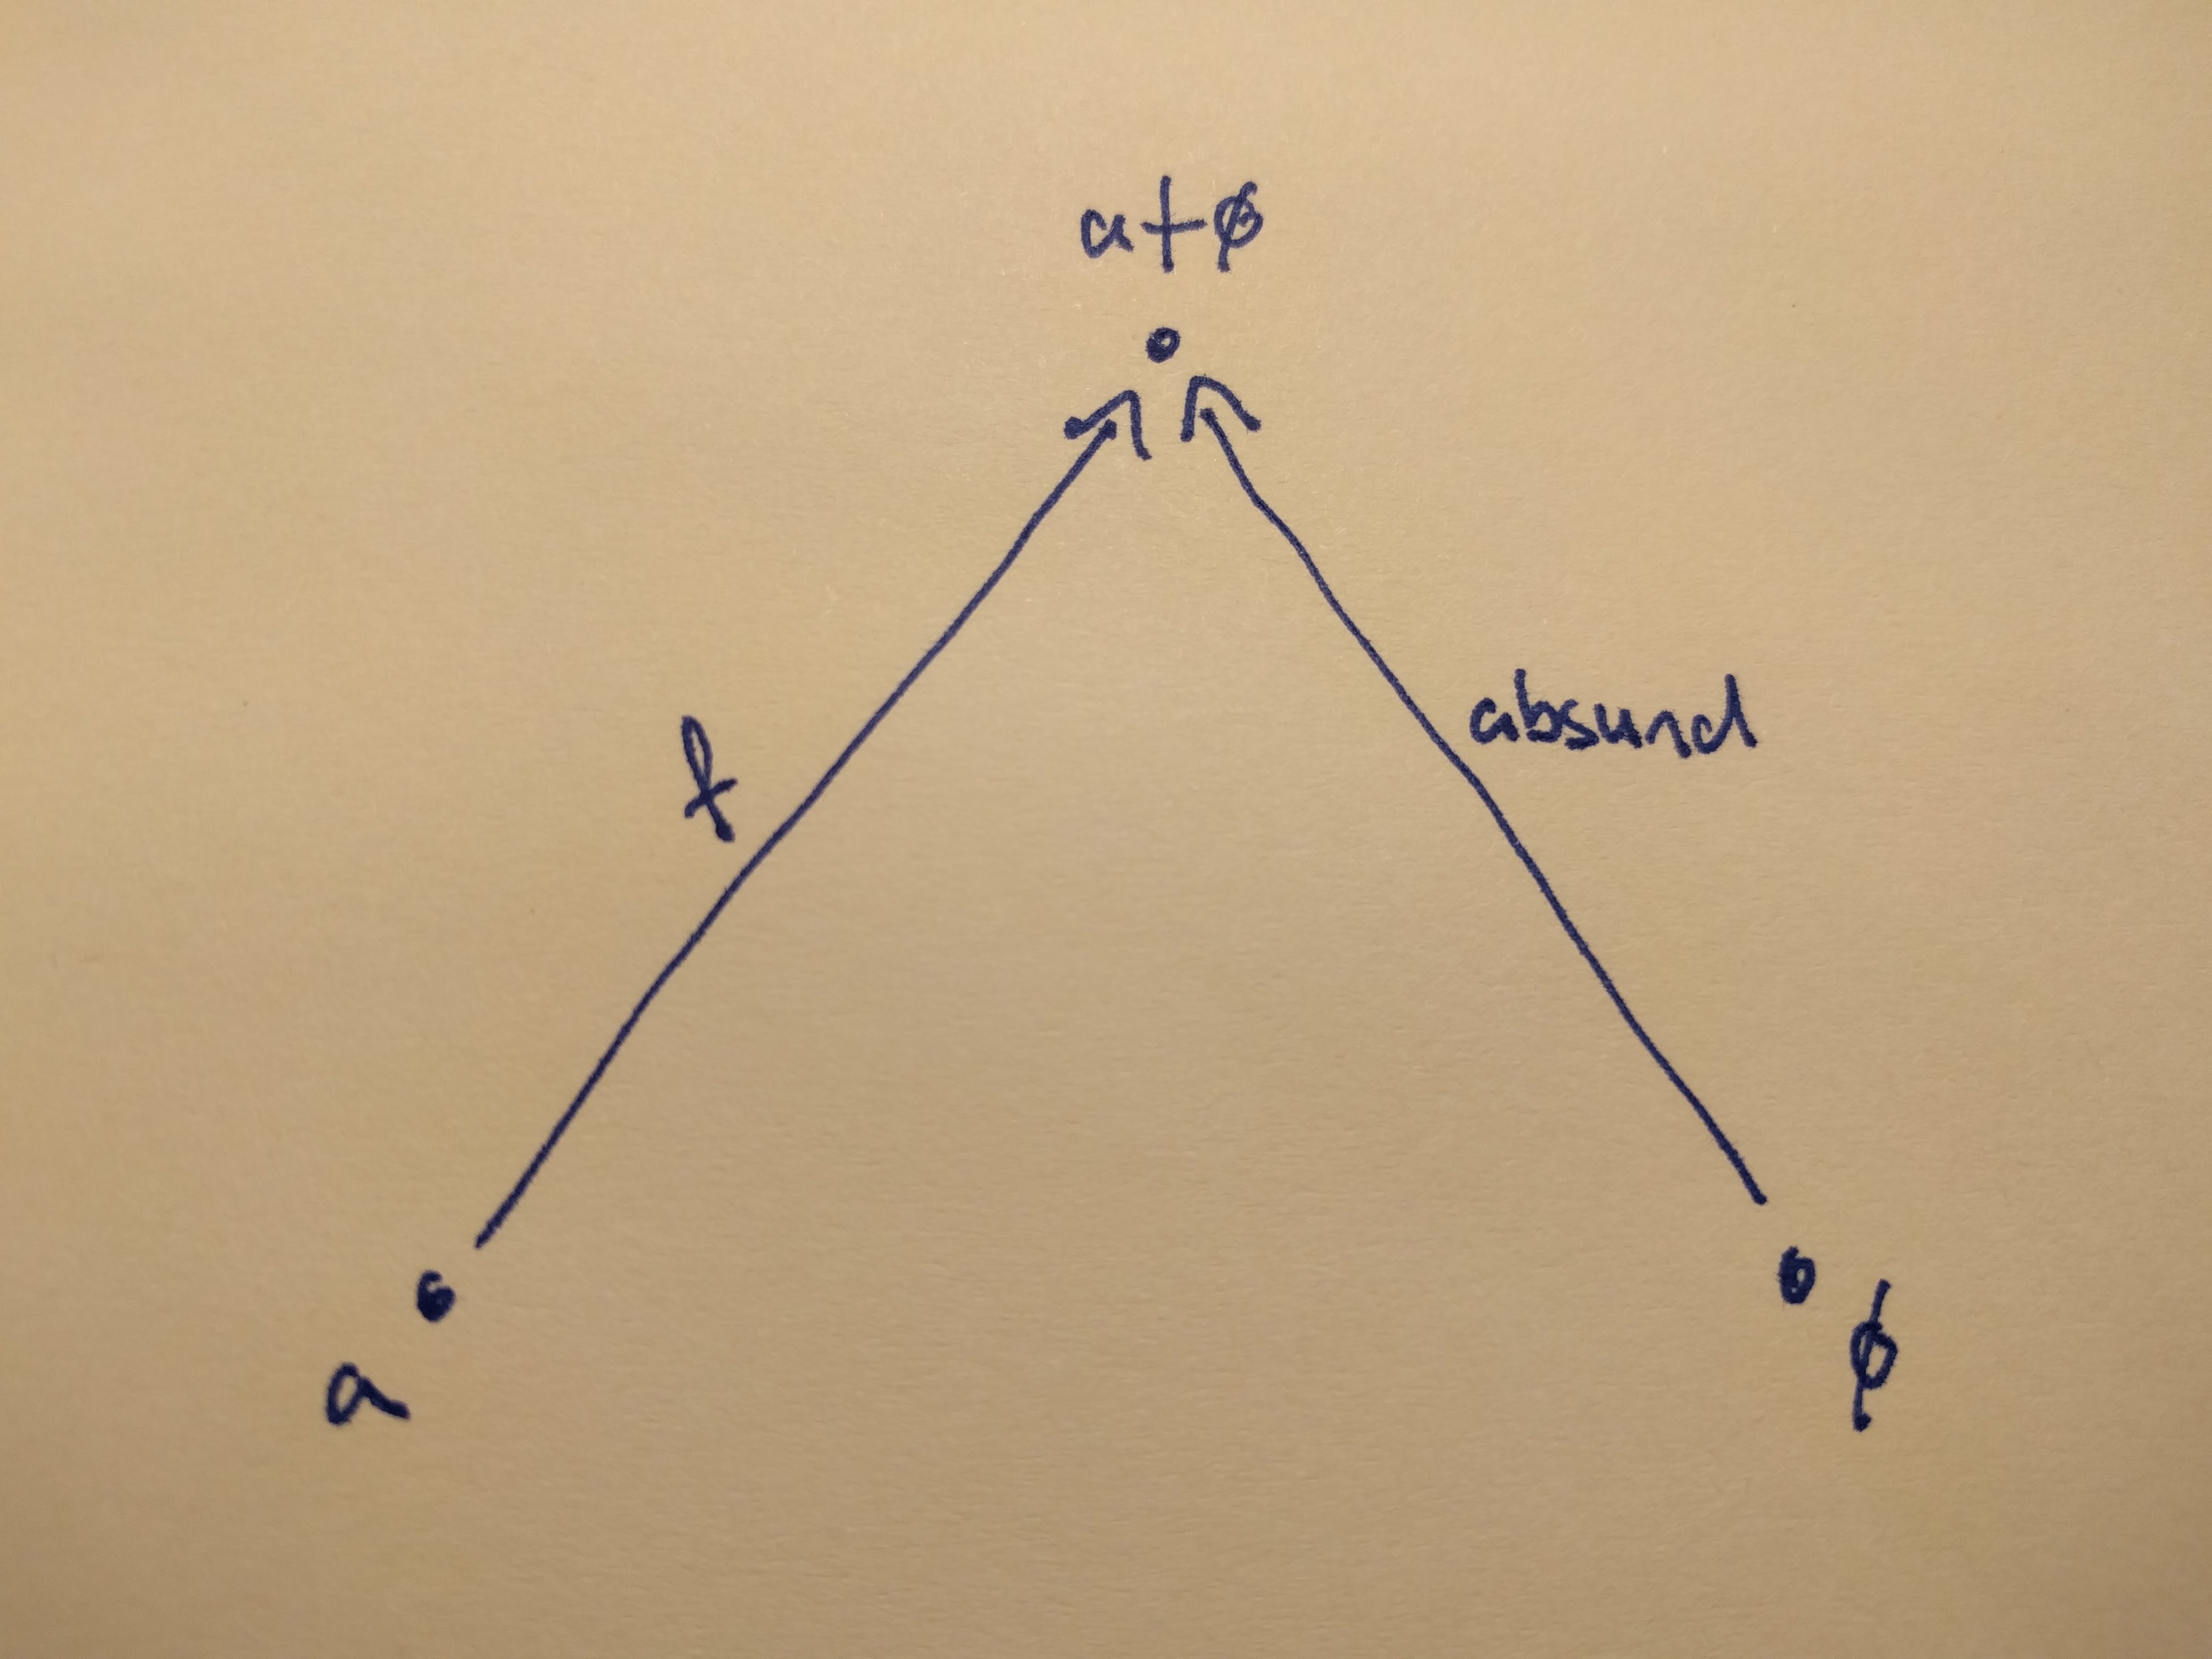 a+ø
f
absurd
a
ø